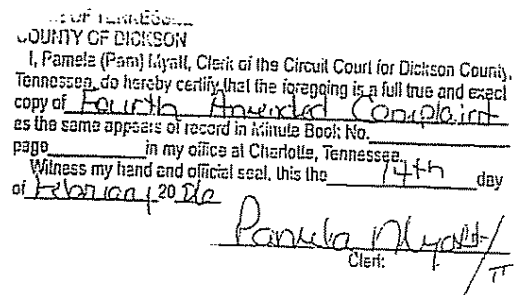 OF TENNESSEE
COUNTY OF DICKSON
I, Pamela (Pam) Myatt, Clerk of the Circuit Court for Dickson County,
Tennessee, do hereby certify that the foregoing is a full true and exact
copy of Fourth Amended Complaint
as the same appears of record in Minute Book No.
page in my office at Charlotte, Tennessee.
Witness my hand and official seal, this the 14th day
of February 20
Pamela Myatt
Clerk